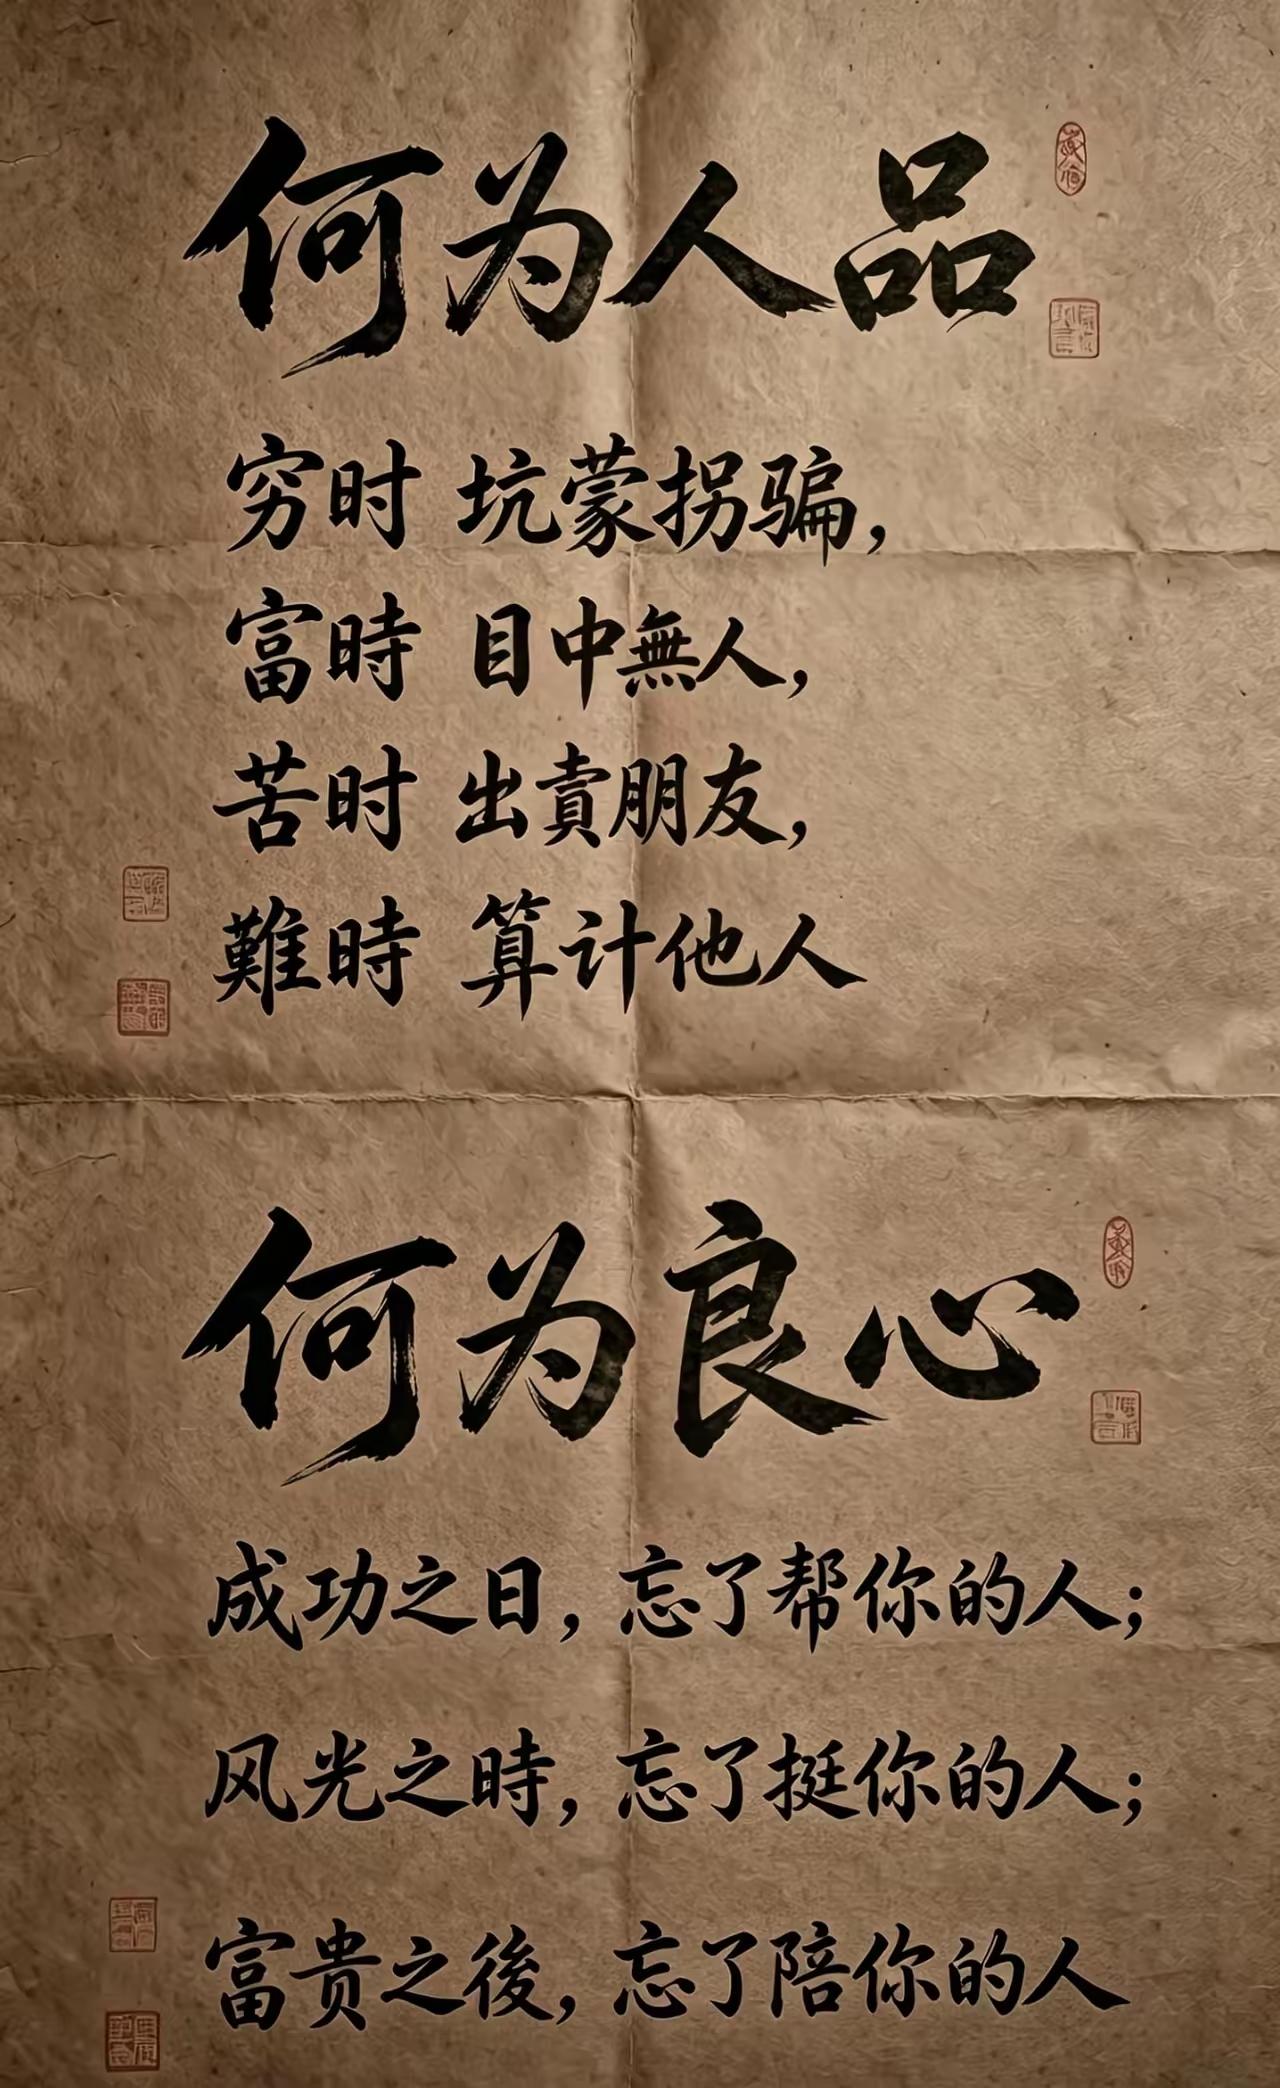 何为人品
穷时 坑蒙拐骗，
富時 目中無人，
苦时 出賣朋友，
難時 算计他人
何为良心
成功之日，忘了帮你的人；
风光之時，忘了挺你的人；
富贵之後，忘了陪你的人